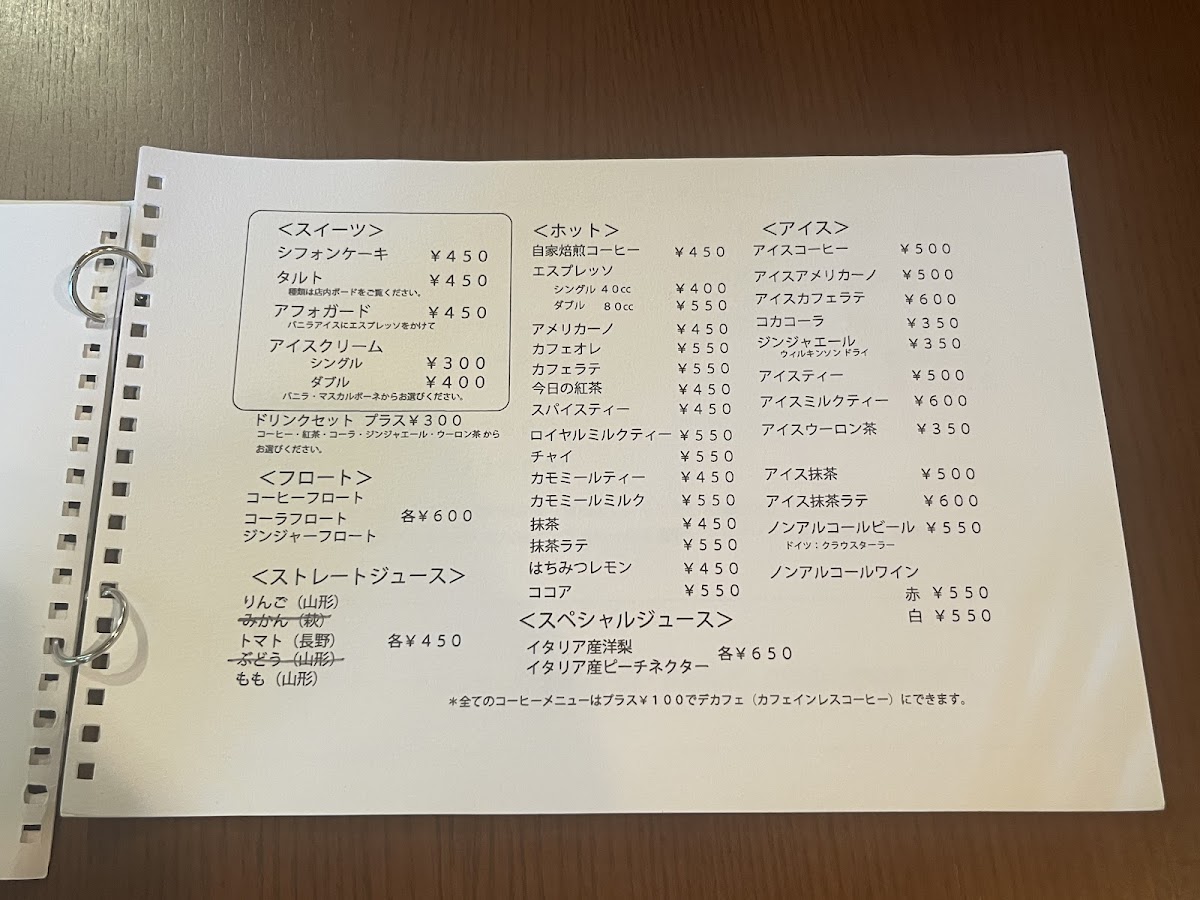 ＜スイーツ＞
シフォンケーキ ￥４５０
タルト ￥４５０
種類は店内ボードをご覧ください。
アフォガード ￥４５０
バニラアイスにエスプレッソをかけて
アイスクリーム
シングル ￥３００
ダブル ￥４００
バニラ・マスカルポーネからお選びください。
ドリンクセット プラス￥３００
コーヒー・紅茶・コーラ・ジンジャエール・ウーロン茶 から
お選びください。
＜フロート＞
コーヒーフロート
コーラフロート 各￥６００
ジンジャーフロート
＜ストレートジュース＞
りんご（山形）
みかん（萩）
トマト（長野） 各￥４５０
ぶどう（山形）
もも（山形）
＜ホット＞
自家焙煎コーヒー ￥４５０
エスプレッソ
シングル ４０cc ￥４００
ダブル ８０cc ￥５５０
アメリカーノ ￥４５０
カフェオレ ￥５５０
カフェラテ ￥５５０
今日の紅茶 ￥４５０
スパイスティー ￥４５０
ロイヤルミルクティー ￥５５０
チャイ ￥５５０
カモミールティー ￥４５０
カモミールミルク ￥５５０
抹茶 ￥４５０
抹茶ラテ ￥５５０
はちみつレモン ￥４５０
ココア ￥５５０
＜スペシャルジュース＞
イタリア産洋梨 各￥６５０
イタリア産ピーチネクター
＜アイス＞
アイスコーヒー ￥５００
アイスアメリカーノ ￥５００
アイスカフェラテ ￥６００
コカコーラ ￥３５０
ジンジャエール ￥３５０
ウィルキンソン ドライ
アイスティー ￥５００
アイスミルクティー ￥６００
アイスウーロン茶 ￥３５０
アイス抹茶 ￥５００
アイス抹茶ラテ ￥６００
ノンアルコールビール ￥５５０
ドイツ：クラウスターラー
ノンアルコールワイン
赤 ￥５５０
白 ￥５５０
＊全てのコーヒーメニューはプラス￥１００でデカフェ（カフェインレスコーヒー）にできます。